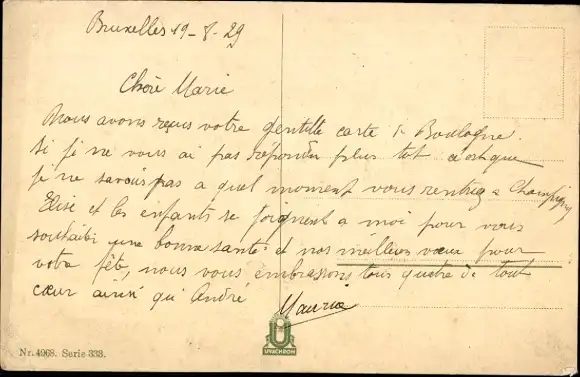 Bruxelles 19-8-29
Chère Marie
Nous avons reçus votre gentille carte de Boulogne.
Si je ne vous ai pas répondu plus tot c'est que
je ne savais pas a quel moment vous rentrez a Champigny
Elise et les enfants se joignent a moi pour vous
souhaiter une bonne santé et nos meilleurs vœux pour
votre fête, nous vous embrassons tous quatre de tout
cœur ainsi qu'André Maurice
UVACHROM
Nr. 4968. Serie 333.